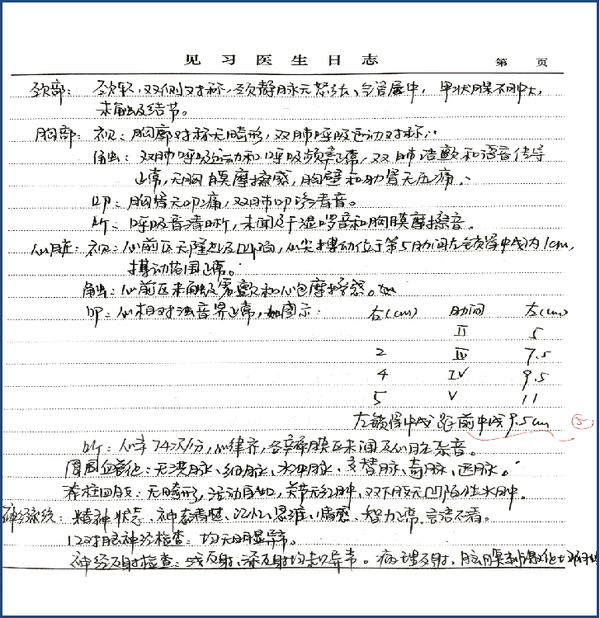 见习医生日志
第 页
颈部：颈软，双侧对称，颈静脉无怒张，气管居中，甲状腺不肿大，
未触及结节。
胸部：视：胸廓对称无畸形，双肺呼吸运动对称；
触：双肺呼吸运动和呼吸频率正常，双肺语颤和语音传导
正常，无胸膜摩擦感，胸壁和肋骨无压痛；
叩：胸骨无叩痛，双肺叩诊清音。
听：呼吸音清晰，未闻及干湿啰音和胸膜摩擦音。
心脏：视：心前区无隆起及凹陷，心尖搏动位于第5肋间左锁骨中线内1cm，
搏动范围正常。
触：心前区未触及震颤和心包摩擦感。
叩：心相对浊音界正常，如图示： 右(cm) 肋间 左(cm)
II 5
2 IV 7.5
4 IV 9.5
5 V 11
左锁骨中线距前中线9.5cm
听：心率74次/分，心律齐，各瓣膜区未闻及心脏杂音。
周围血管征：无洪脉、细脉、水冲脉、交替脉、奇脉、迟脉。
脊柱四肢：无畸形，活动自如，关节无红肿，双下肢无凹陷性水肿。
神经系统：精神状态、神志清楚，记忆、思维、情感、智力正常，言语不吝。
12对脑神经检查：均无明显异常。
神经反射检查：浅反射、深反射均未见异常。病理反射，脑膜刺激征